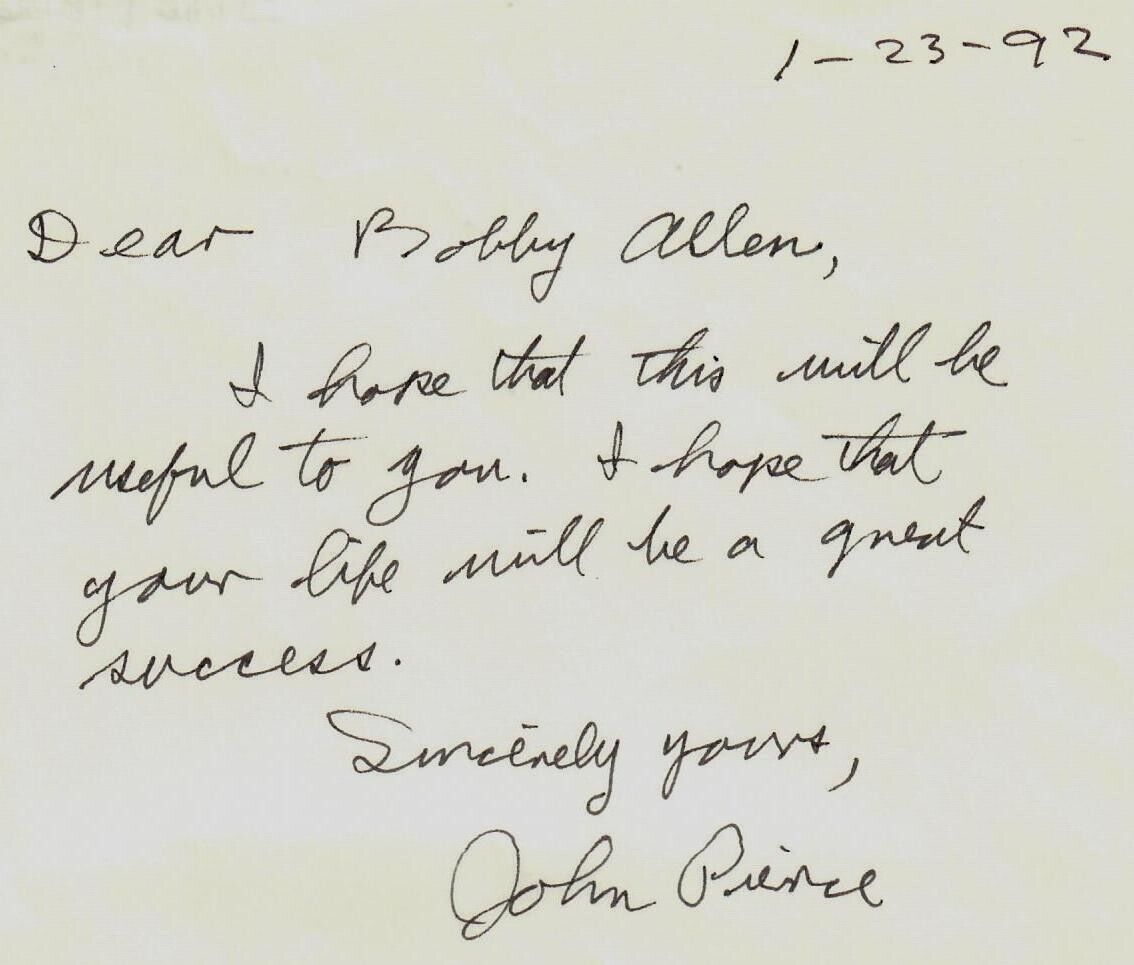 1-23-92
Dear Bobby Allen,
I hope that this will be
useful to you. I hope that
your life will be a great
success.
Sincerely yours,
John Pierce